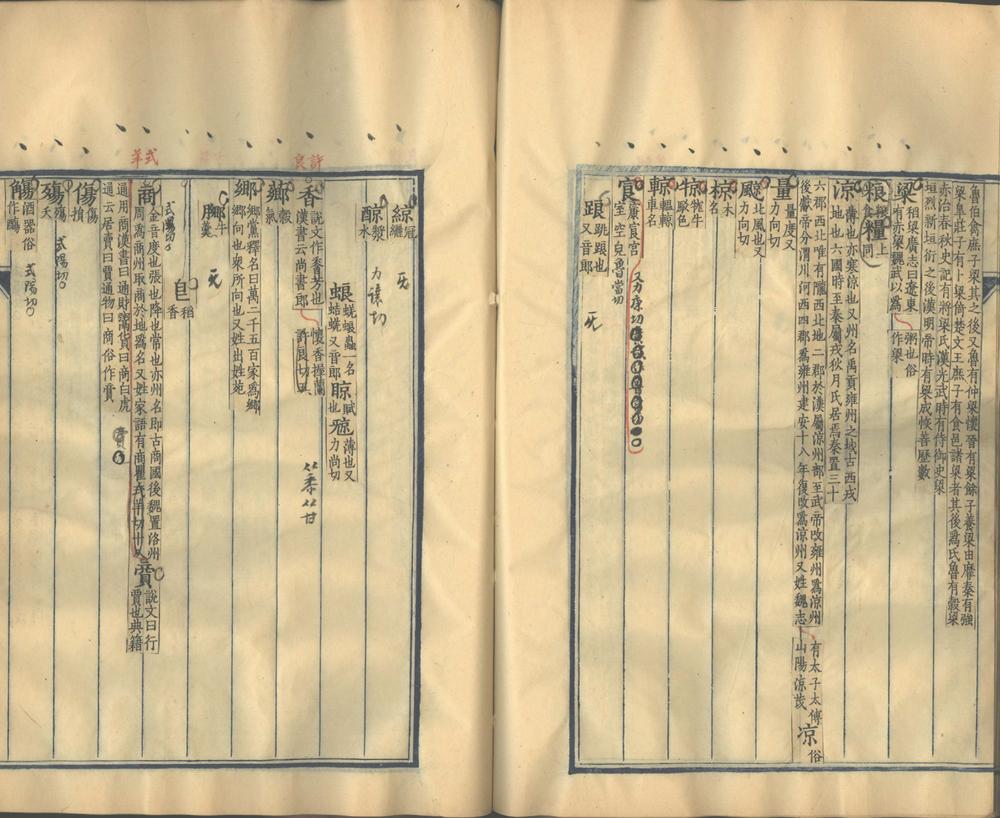 魯伯禽庶子梁其之後又魯有仲梁懷晉有梁餘子養梁由靡秦有強
梁皐莊子有卜梁倚楚文王庶子有食邑諸梁者其後爲氏魯有穀梁
赤治春秋史記有將梁氏漢光武時有侍御史梁
垣烈新垣衍之後漢明帝時有梁成恢善歷數
梁
稻梁廣志曰遼東
有赤梁魏武以爲
粥也俗
作粱
粮
糧
上
同
涼
薄也亦寒涼也又州名禹貢雍州之域古西戎
地也六國時至秦屬戎狄月氏居焉秦置三十
六郡西北唯有隴西北地二郡於漢屬涼州部至武帝改雍州爲涼州
後獻帝分渭川河西四郡爲雍州建安十八年復改爲涼州又姓魏志
有太子太傅
山陽涼茂
凉
俗
量
量度又
力向切
飈
北風也又
力向切
椋
木
名
㹁
牻牛
駁色
輬
轀輬
車名
㝗
康㝗宮
室空皃魯當切
又力康切
踉
跳踉也
又音郎
綡
冠
纚
䣼
漿
水
力讓切
蜋
蜣蜋蟲一名
蛣蜣又音郎
䝶
賦
也
薄也又
力尚切
許良
香
說文作㿝芳也
漢書云尚書郎
懷香握蘭
許良切五
从黍从甘
薌
穀
氣
鄉
鄉黨釋名曰萬二千五百家爲鄉
鄉向也衆所向也又姓出姓苑
膷
牛
羹
稻
香
式羊
式陽切
商
金音度也張也降也常也亦州名即古商國後魏置洛州
周爲商州取商於地爲名又姓家語有商瞿式羊切十八
賣
說文曰行
賈也典籍
通用商漢書曰通財鬻貨曰商白虎
通云居賣曰賈通物曰商俗作賣
傷
傷
損
殤
殤
夭
式陽切
觴
酒器俗
作䚨
式陽切